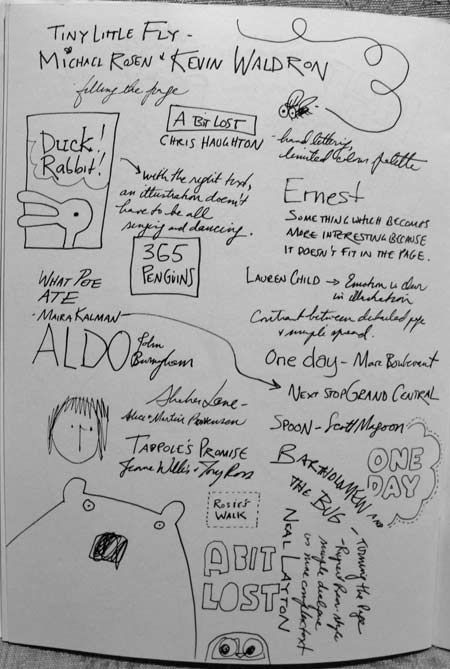 TINY LITTLE FLY -
MICHAEL ROSEN & KEVIN WALDRON
filling the page
A BIT LOST
CHRIS HAUGHTON
- hand lettering,
limited colour palette
Duck!
Rabbit!
with the right text,
an illustration doesn't
have to be all
singing and dancing.
Ernest
SOMETHING WHICH BECOMES
MORE INTERESTING BECAUSE
IT DOESN'T FIT IN THE PAGE.
365
PENGUINS
LAUREN CHILD → Emotion is clear
in illustration
Contrast between detailed page
& simple spread.
WHAT PETE
ATE
- MAIRA KALMAN
ALDO John
Burningham
One day -
NEXT STOP GRAND CENTRAL
SPOON - Scott Magoon
Lane -
Alice & Martin Provensen
TADPOLE'S PROMISE
Jeanne Willis & Tony Ross
ONE
DAY
BARTHOLOMEW AND
THE BUG
NEAL LAYTON
- Turning the Page
- Rupert Bear style
simple dialogue
vs more complex text
ROSIE'S
WALK
A BIT
LOST